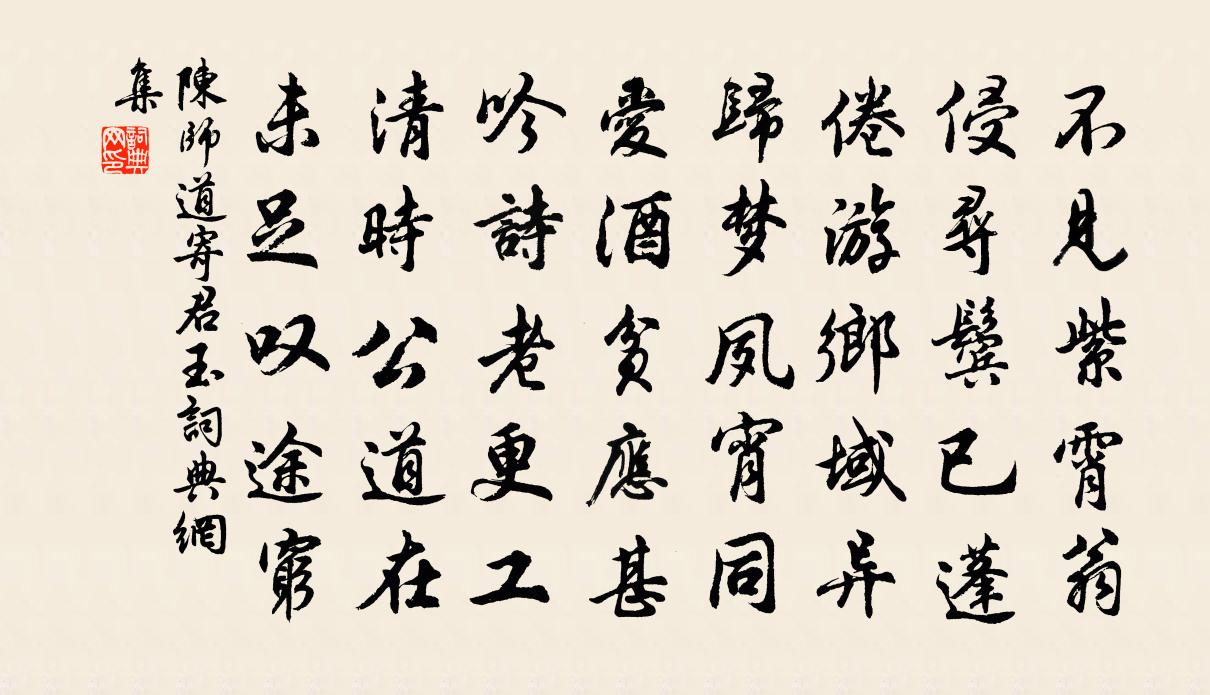 不見紫霄翁
侵尋鬓已蓬
倦游鄉域异
歸梦夙宵同
愛酒貧應甚
吟詩老更工
清時公道在
未足叹途窮
陳師道寄君玉詞典網
集
詞典网印